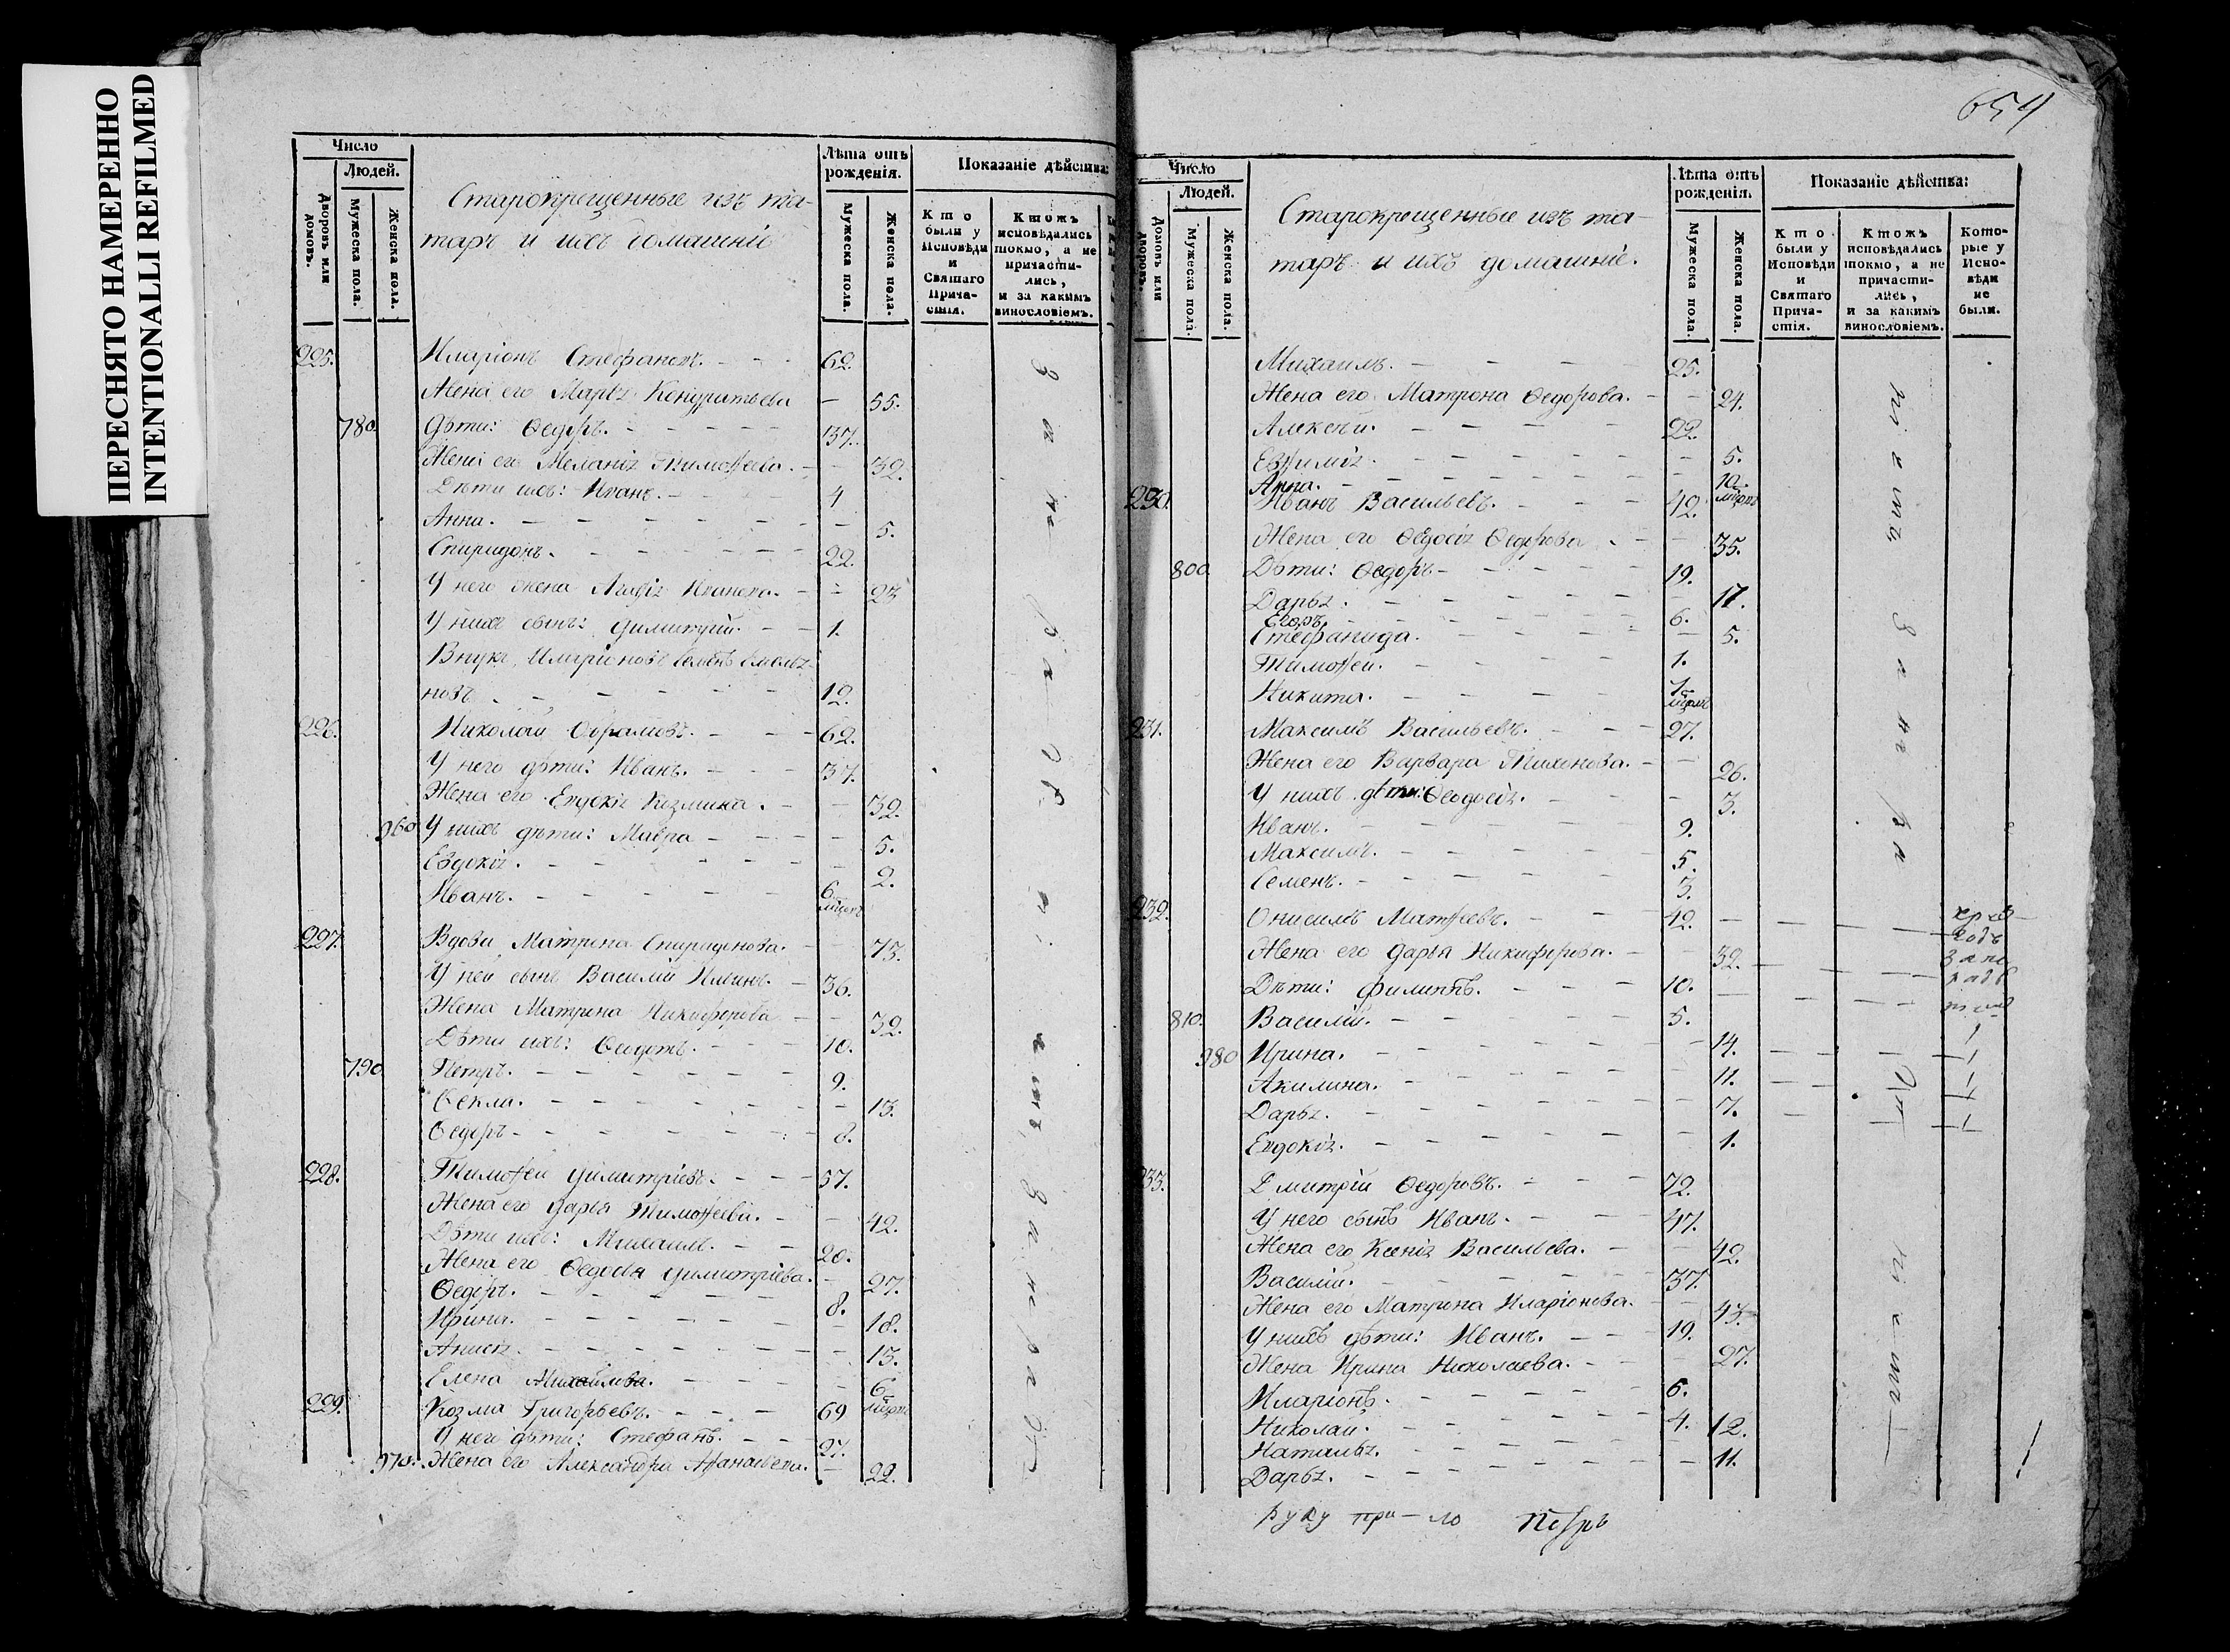 ПЕРЕСНЯТО НАМЕРЕННО
INTENTIONALLI REFILMED
Число
Людей.
Дворовъ или домовъ.
Мужеска пола.
Женска пола.
Старокрещенные изъ та-
таръ и ихъ домашніе
Лѣта отъ рожденія.
Мужеска пола.
Женска пола.
Показаніе дѣйства:
Кто были у Исповѣди и Святаго Причастія.
Ктожъ исповѣдались токмо, а не причастились, и за какимъ винословіемъ.
225. Иларіонъ Стефановъ. 62.
Жена его Марья Кондратьева 55.
780. Дѣти: Ѳедоръ. 37.
Жена его Меланія Тимоѳеева. 32.
Дѣти ихъ: Иванъ. 4
Анна. 5.
Спиридонъ. 22.
У него жена Агафія Иванова. 23
У нихъ сынъ: Димитрій. 1.
Внукъ Иларіоновъ Семенъ Емелья-
новъ 12.
226. Николай Абрамовъ. 62.
У него дѣти: Иванъ. 37.
Жена его Евдокія Козмина. 32.
960 У нихъ дѣти: Мавра 5.
Евдокія. 2.
Иванъ. 6 мѣсяц
227. Вдова Матрена Спиридонова. 73.
У ней сынъ Василій Ильинъ. 36.
Жена Матрена Никифорова 32.
Дѣти ихъ: Ѳедотъ. 10.
790 Петръ. 9.
Ѳекла. 13.
Ѳедоръ 8.
228. Тимоѳей Димитріевъ. 57.
Жена его Дарья Тимоѳеева. 42.
Дѣти ихъ: Михаилъ. 20.
Жена его Ѳедосья Димитріева. 27.
Ѳедоръ. 8.
Ирина. 18.
Анисія. 13.
Елена Михайлова. 6 мѣсяц
229. Козма Григорьевъ. 69
У него дѣти: Стефанъ. 27.
970. Жена его Александра Аѳанасьева. 22.
654
Число
Людей.
Домовъ или дворовъ.
Мужеска пола.
Женска пола.
Старокрещенные изъ та-
таръ и ихъ домашніе.
Лѣта отъ рожденія.
Мужеска пола.
Женска пола.
Показаніе дѣйства:
Кто были у Исповѣди и Святаго Причастія.
Ктожъ исповѣдались токмо, а не причастились, и за какимъ винословіемъ.
Которые у Исповѣди не были.
Михаилъ. 25.
Жена его Матрона Ѳедорова. 24.
Алексѣй. 22.
Евѳимія. 5.
Анна. 10. мѣсяц
230. Иванъ Васильевъ. 42.
Жена его Ѳедосія Ѳедорова 35.
800. Дѣти: Ѳедоръ 19.
Дарья. 17.
Егоръ. 6.
Стефанида. 5.
Тимоѳей. 1.
Никита.
231. Максимъ Васильевъ. 27.
Жена его Варвара Тихонова. 26.
У нихъ дѣти: Ѳеодосія. 3.
Иванъ. 9.
Максимъ. 5.
Семенъ. 3.
232. Онисимъ Матѳеевъ. 42.
Жена его Дарья Никифорова. 32.
Дѣти: Филиппъ. 10.
810. Василій. 5.
980 Ирина. 14.
Акилина. 11.
Дарья. 7.
Евдокія. 1.
233. Дмитрій Ѳедоровъ. 72.
У него сынъ Иванъ. 47.
Жена его Ксенія Васильева. 42.
Василій. 37.
Жена его Матрена Иларіонова. 43.
У нихъ дѣти: Иванъ. 19.
Жена Ирина Николаева. 27.
Иларіонъ. 6.
Николай. 4.
Наталья. 12.
Дарья. 11.